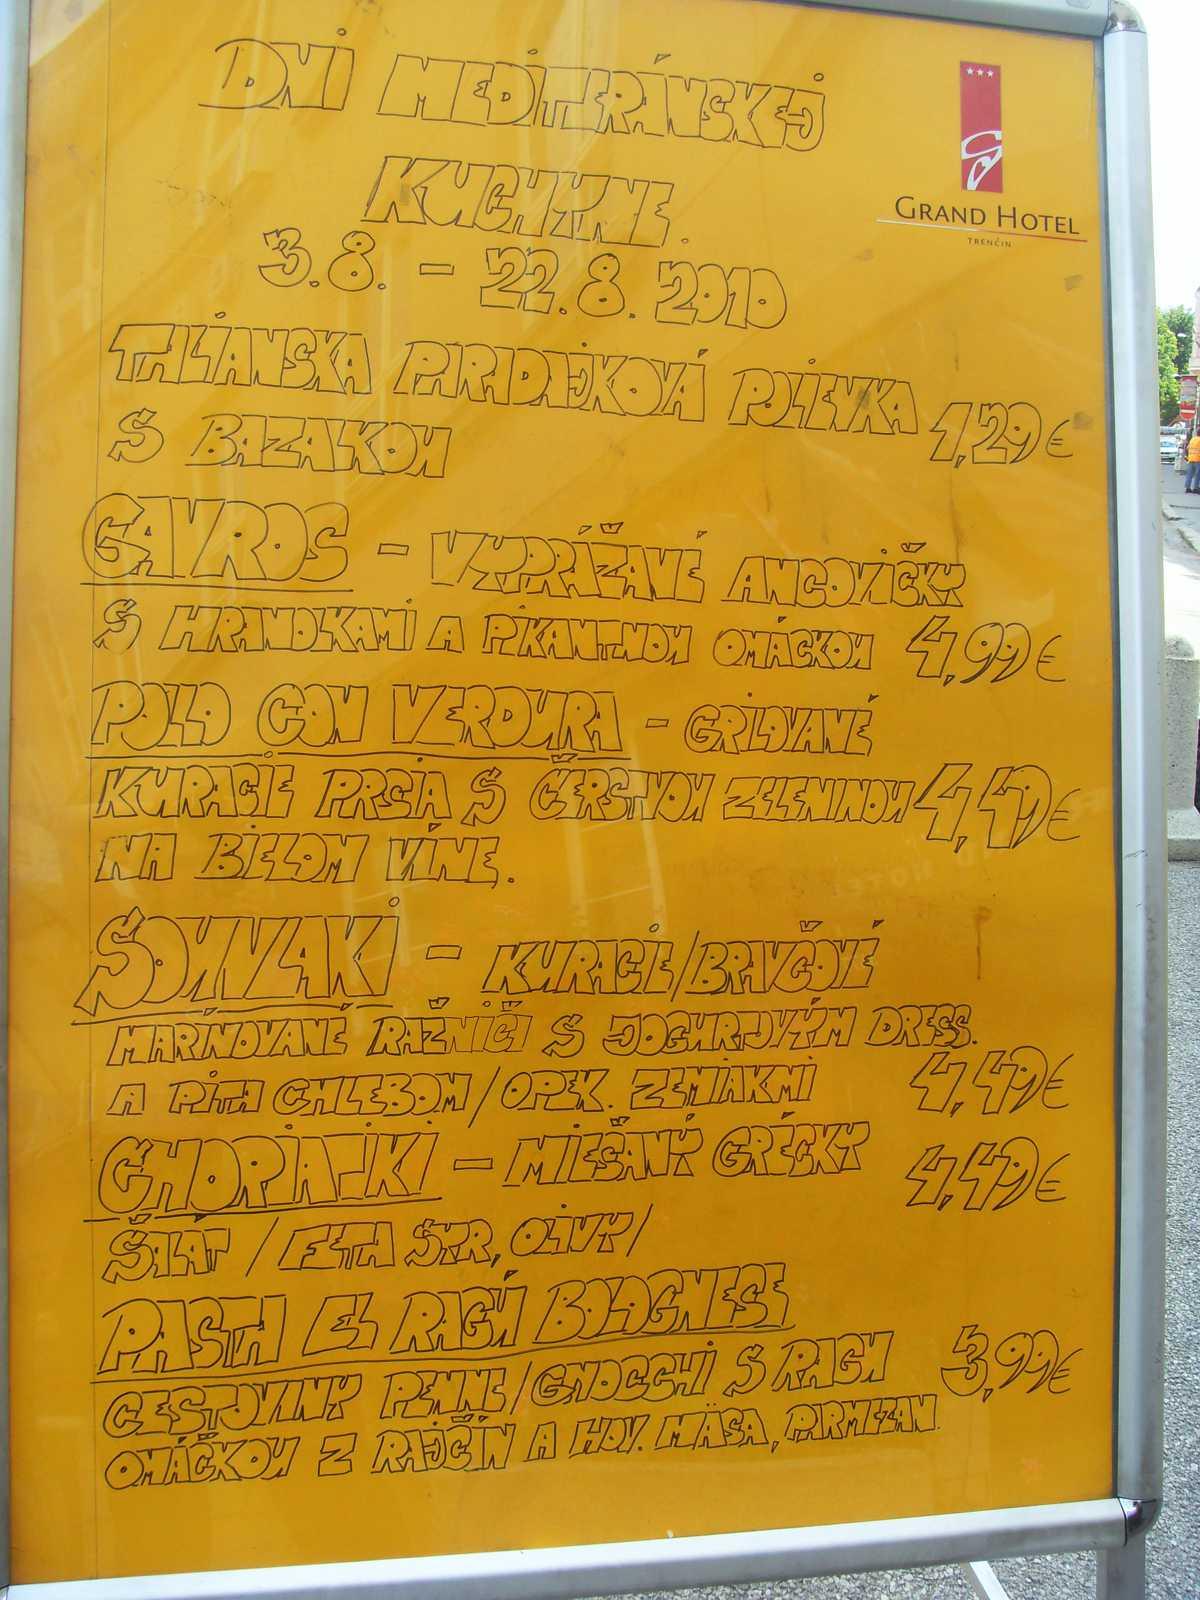 DNI MEDITERÁNSKEJ
KUCHYNE.
3.8. - 22.8.2010
GRAND HOTEL
TRENČÍN
TALIANSKA PARADAJKOVÁ POLIEVKA
S BAZALKOU 1,29€
GAVROS - VYPRÁŽAVÉ ANCOVIČKY
S HRANOLKAMI A PIKANTNOU OMÁČKOU 4,99€
POLLO CON VERDURA - GRILOVANÉ
KURACIE PRSIA S ČERSTVOU ZELENINOU 4,49€
NA BIELOM VÍNE.
SOUVLAKI - KURACIE/BRAVČOVÉ
MARINOVANÉ RAŽNIČI S JOGURTOVÝM DRESS.
A PITA CHLEBOM/OPEK. ZEMIAKMI 4,49€
CHORIATIKI - MIEŠANÝ GRÉCKY 4,49€
ŠALÁT / FETA SYR, OLIVY/
PASTA EL RAGÚ BOLOGNESE
CESTOVINY PENNE/GNOCCHI S RAGU 3,99€
OMÁČKOU Z RAJČÍN A HOV. MÄSA, PARMEZAN.